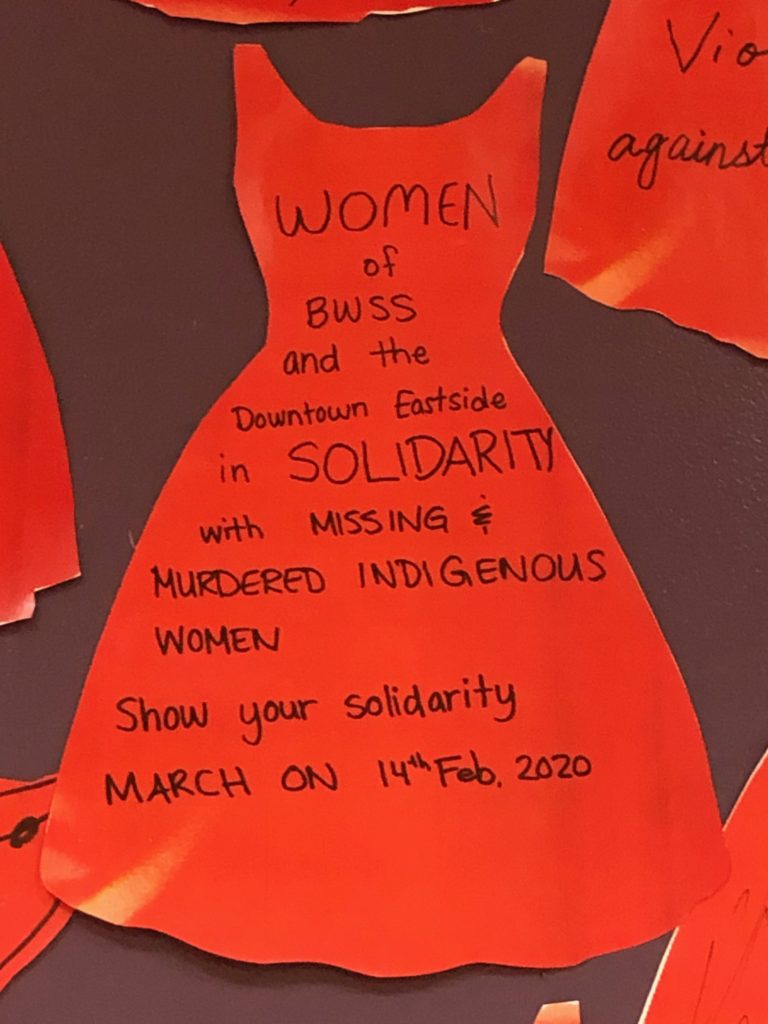 WOMEN
of
BWSS
and the
Downtown Eastside
in SOLIDARITY
with MISSING &
MURDERED INDIGENOUS
WOMEN
Show your solidarity
MARCH ON 14th Feb, 2020
against